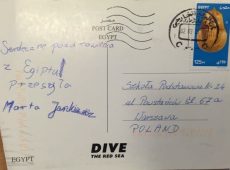 POST CARD
EGYPT
Serdeczne pozdrowienia
z Egiptu!
przesyła
Marta
125
Szkoła Podstawowa
ul. Powstańców 67a
Warszawa
POLAND
DIVE
THE RED SEA
EGYPT